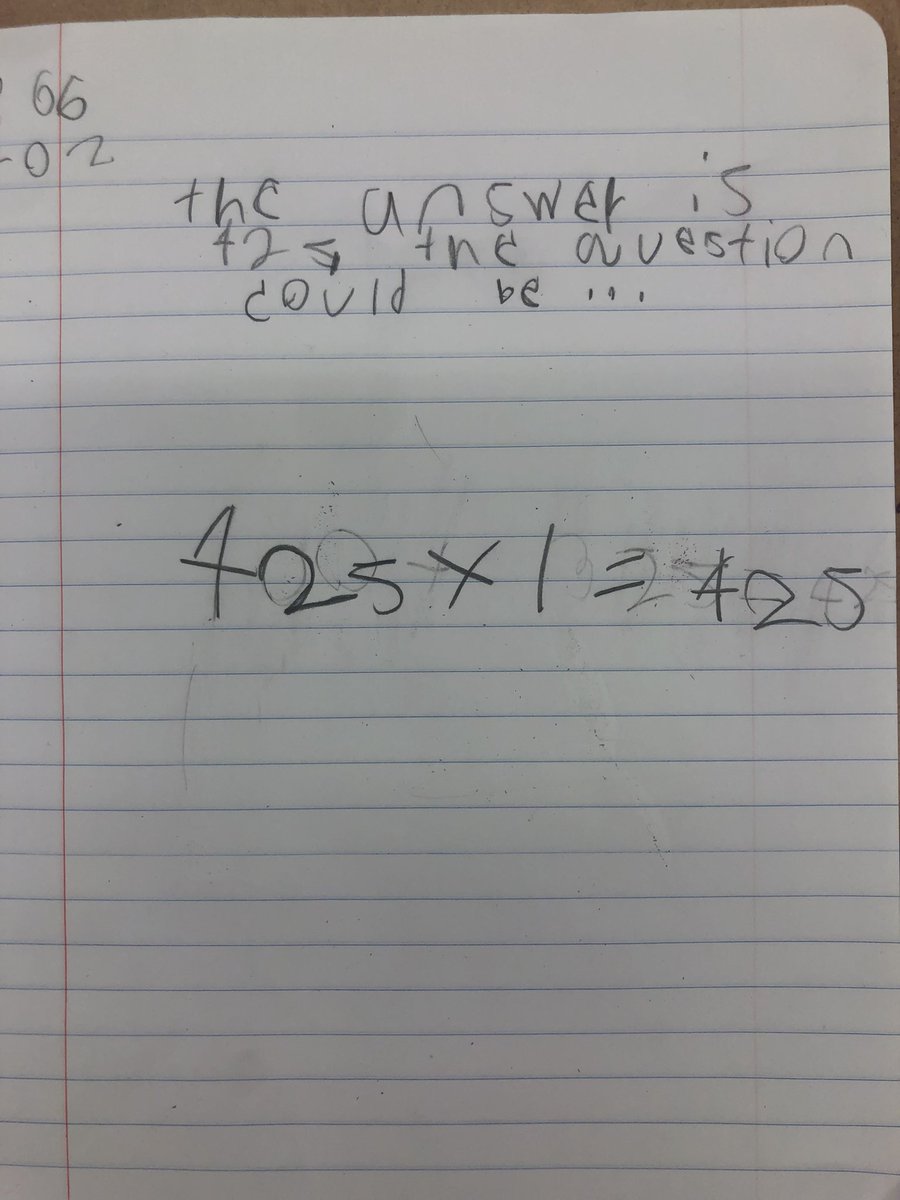 66
-02
the answer is
425 the question
could be ...
425 × 1 = 425